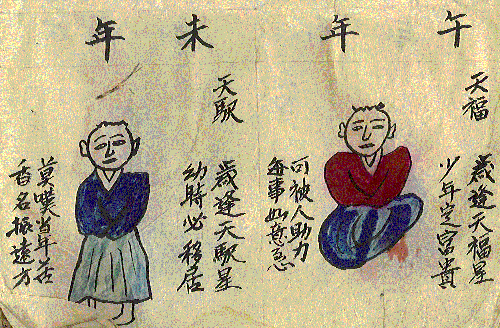 午年
天福
歲逢天福星
少年定富貴
可被人助力
每事如意急
未年
天駅
歲逢天駅星
幼時必移居
莫嘆当年苦
香名振遠方